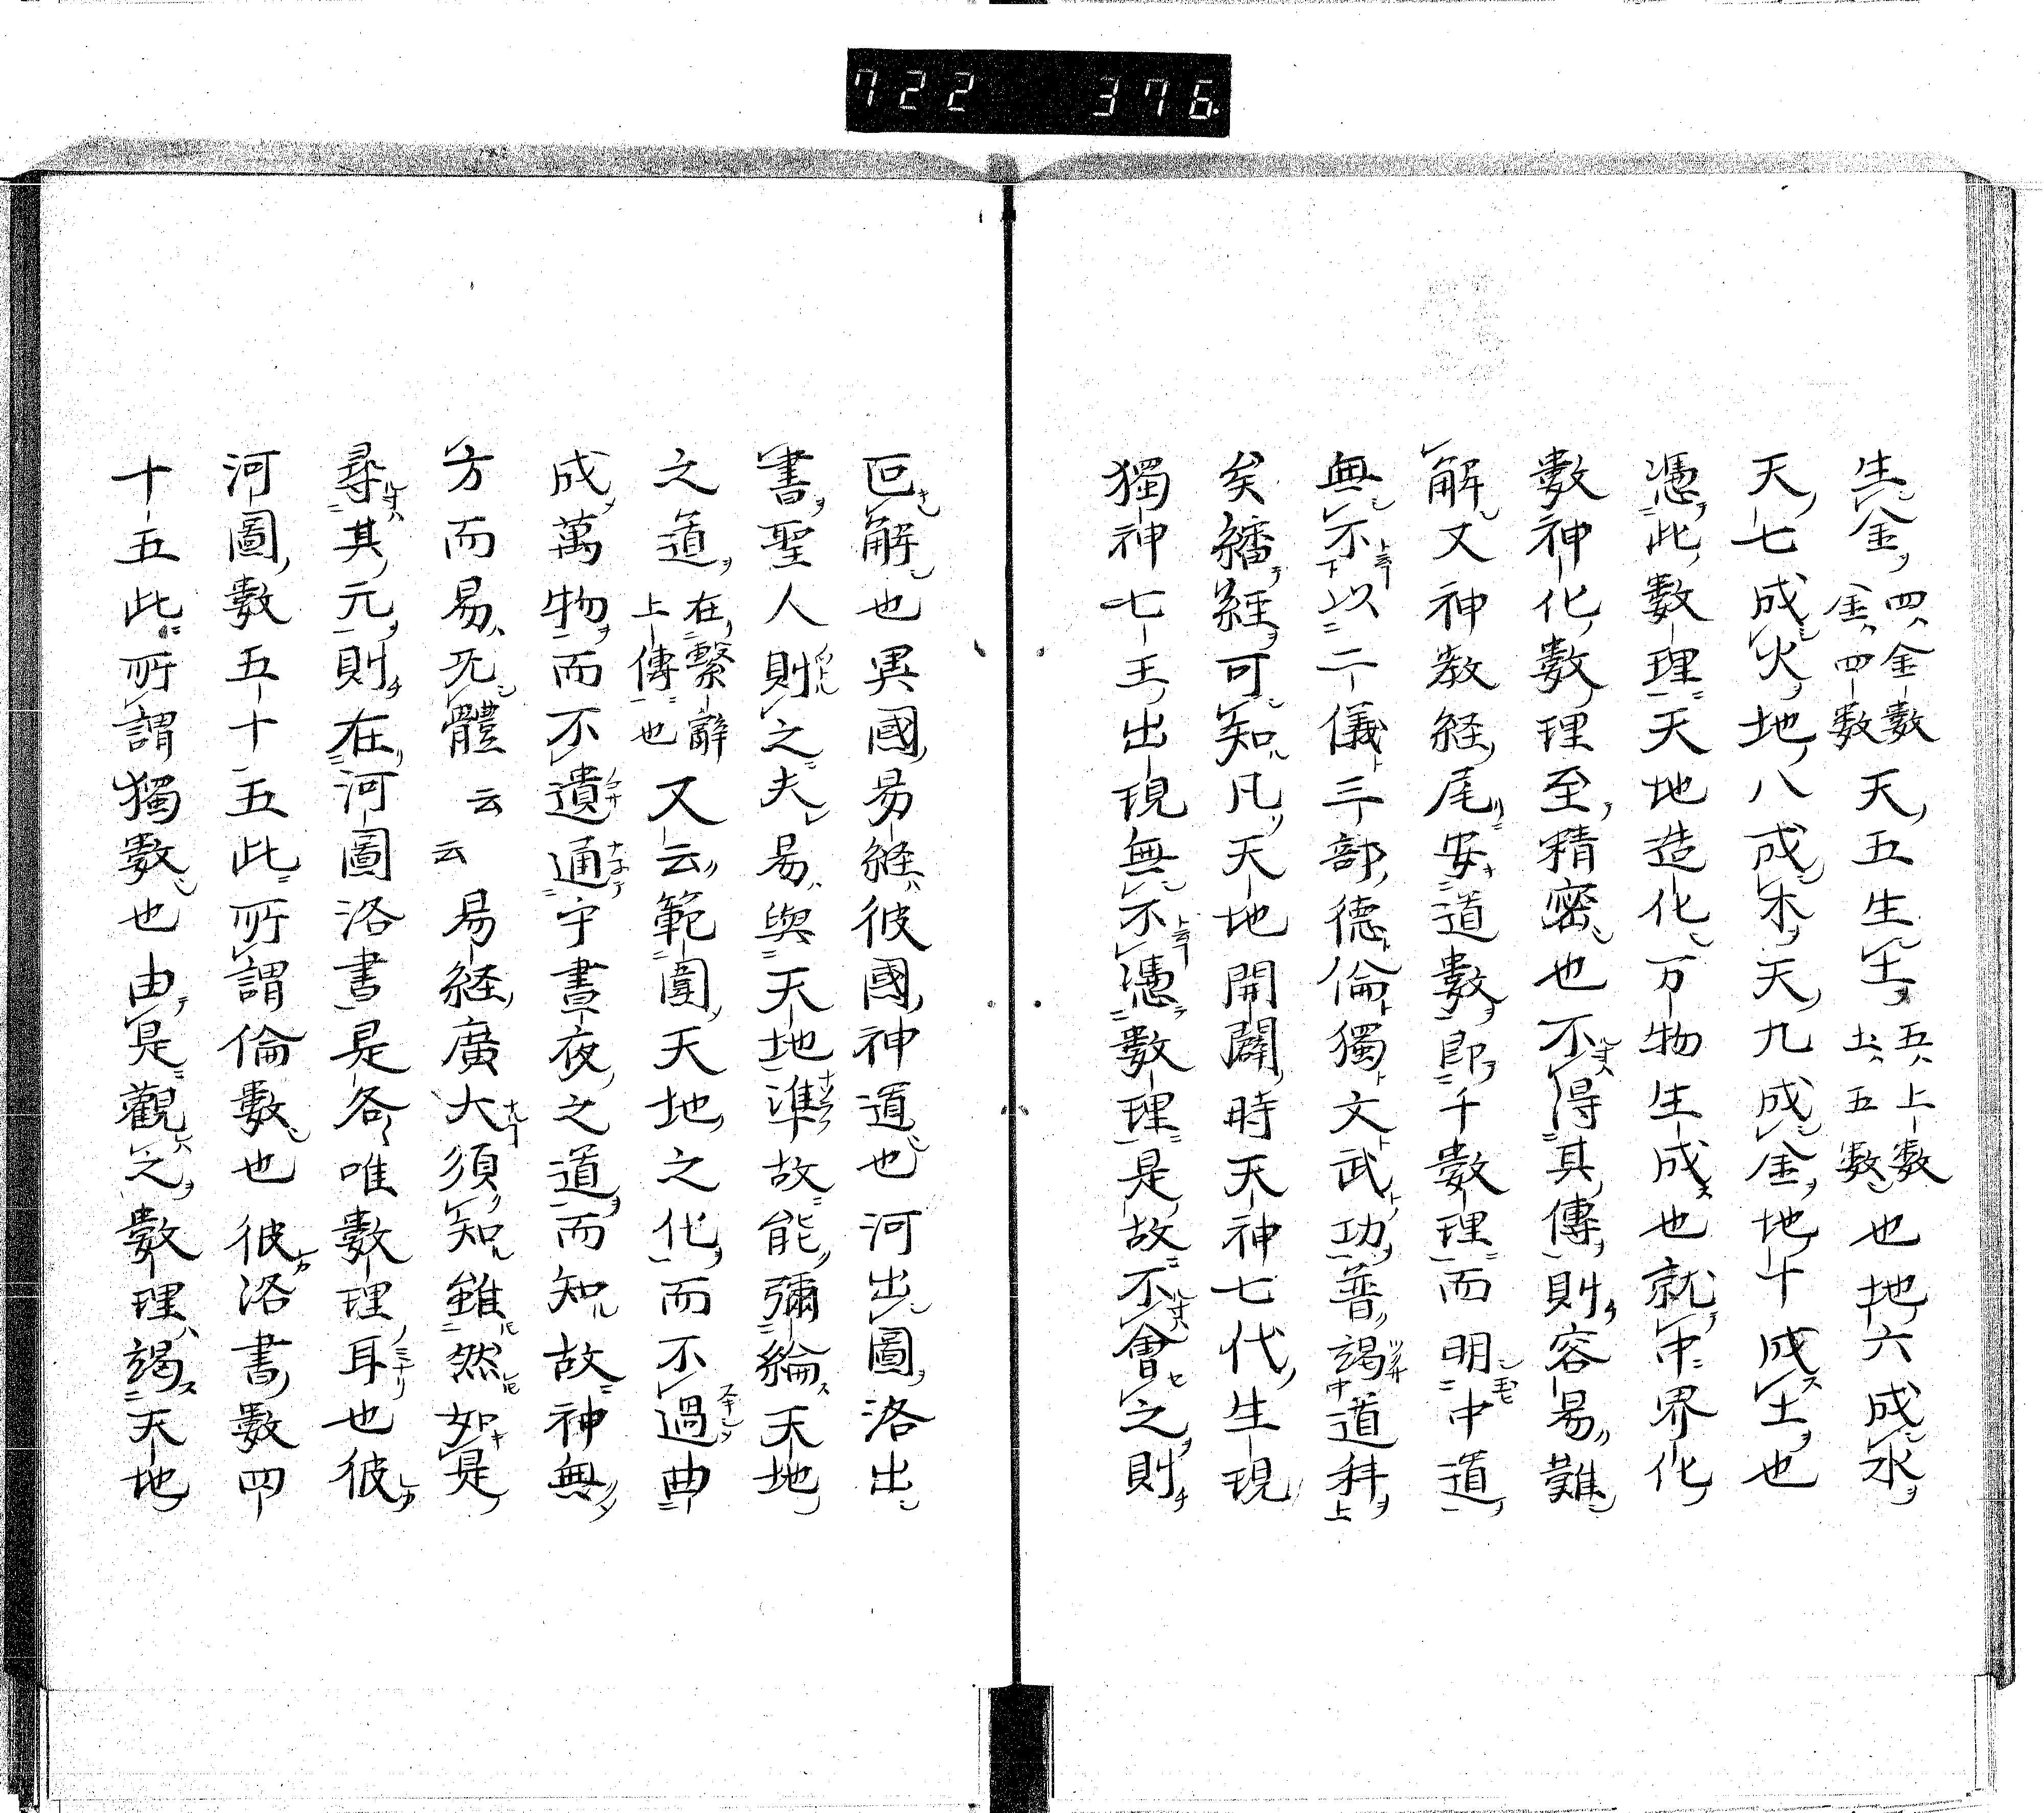 722 376
生金四金数金四数天五生土五土数土五数也地六成水
天七成火地八成木天九成金地十成土也
憑此數理天地造化万物生成也就中界化
數神化數理至精密也不得其傳則容易難
解又神教経尾安道數即千數理而明中道
無不以二儀三部德倫獨文武功普謁道科
矣繙経可知凡天地開闢時天神七代生現
獨神七王出現無不憑數理是故不會之則
叵解也異國易経彼國神道也河出圖洛出
書聖人則之夫易與天地準故能彌綸天地
之道在繫辭上傳也又云範圍天地之化而不過曲
成萬物而不遺通乎晝夜之道而知故神無
方而易无體云云易経廣大須知雖然如是
尋其元則在河圖洛書是各唯數理耳也彼
河圖數五十五此所謂倫數也彼洛書數四
十五此所謂獨數也由是觀之數理謁天地